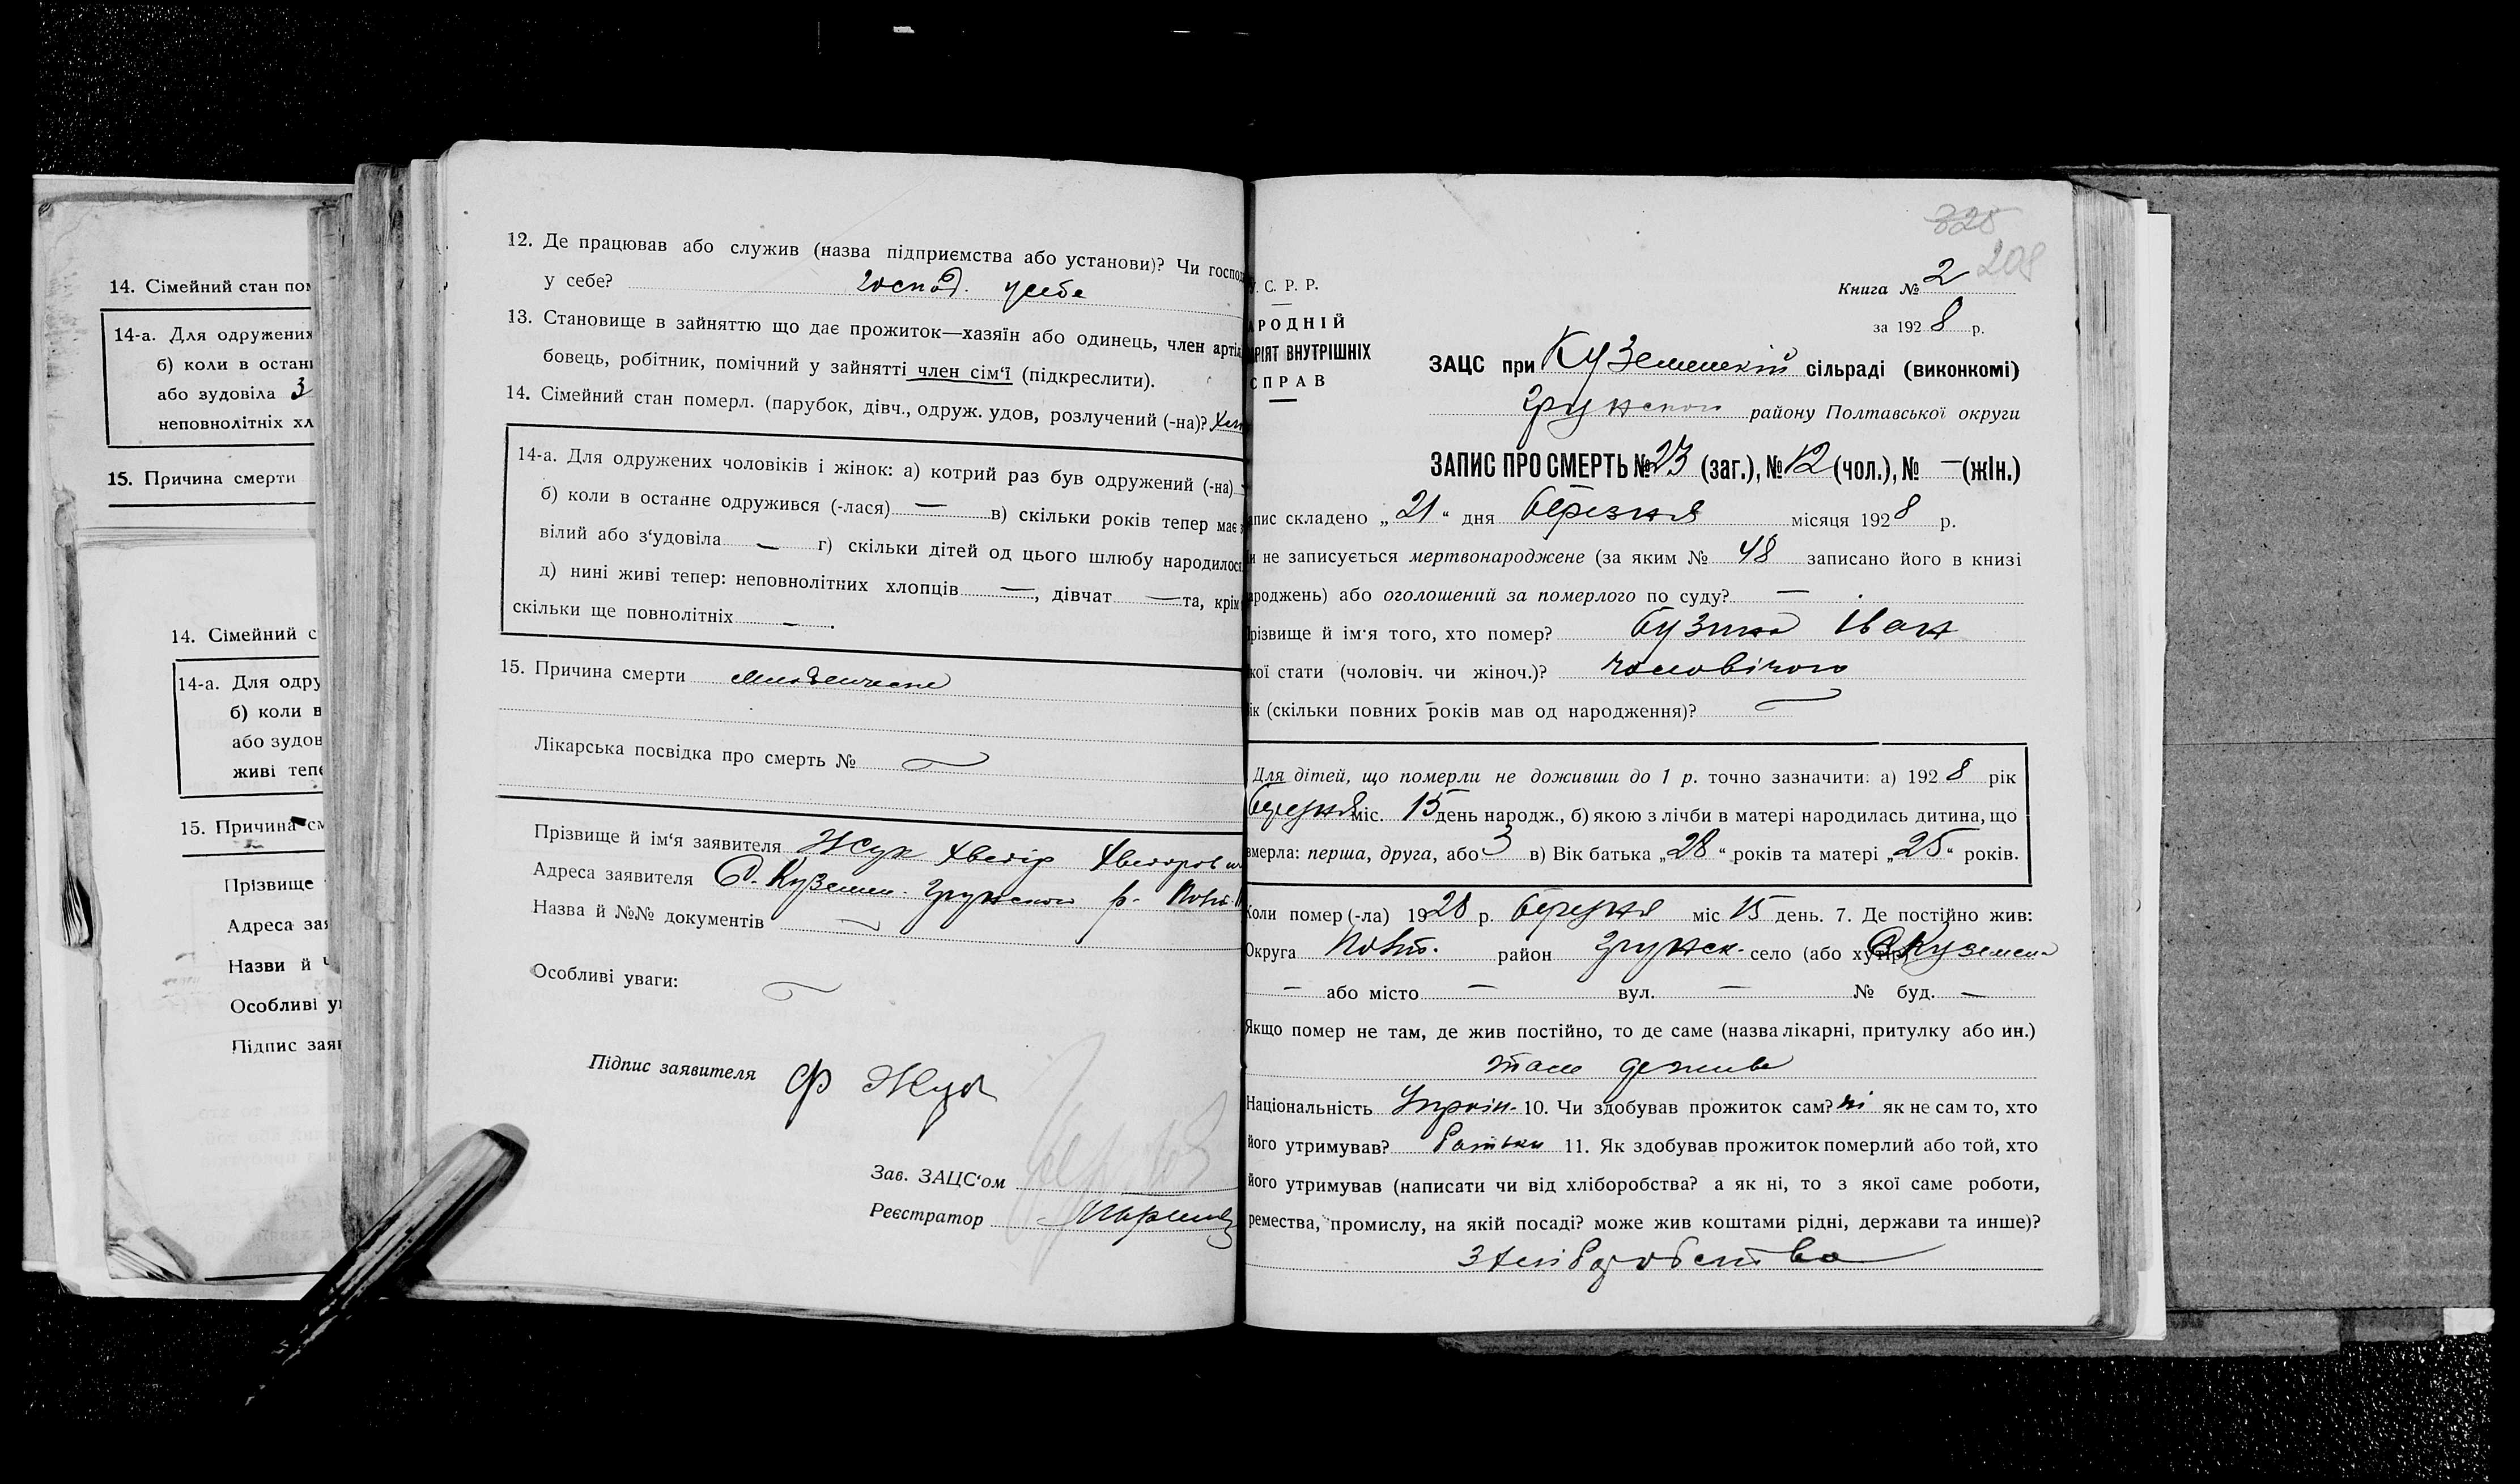 14. Сімейний стан
14-а. Для одружених
б) коли в остан
або зудовіла 3
неповнолітніх хл
15. Причина смерти
14. Сімейний с
14-а. Для одру
б) коли в
або зудов
живі тепе
15. Причина см
Прізвище
Адреса зая
Назви й
Особливі ув
Підпис заяв
12. Де працював або служив (назва підприємства або установи)? Чи господ
у себе? господ. у себе
13. Становище в зайняттю що дає прожиток—хазяїн або одинець, член артіл
бовець, робітник, помічний у зайнятті член сім‘ї (підкреслити).
14. Сімейний стан померл. (парубок, дівч., одруж. удов, розлучений (-на)?
14-а. Для одружених чоловіків і жінок: а) котрий раз був одружений (-на)
б) коли в останнє одружився (-лася) — в) скільки років тепер має
вілий або з‘удовіла — г) скільки дітей од цього шлюбу народилося
д) нині живі тепер: неповнолітних хлопців —, дівчат — та, крім
скільки ще повнолітніх — .
15. Причина смерти
Лікарська посвідка про смерть № —
Прізвище й ім‘я заявителя Жук Хведір Хведорович
Адреса заявителя С. Куземен. Грунского р. Полт.
Назва й №№ документів —
Особливі уваги: —
Підпис заявителя Ф Жук
Зав. ЗАЦС‘ом
Реєстратор
325
208
У. С. Р. Р.
АРОДНІЙ
РІЯТ ВНУТРІШНІХ
СПРАВ
Книга № 2
за 1928 р.
ЗАЦС при Куземенській сільраді (виконкомі)
Грунского району Полтавської округи
ЗАПИС ПРО СМЕРТЬ № 23 (заг.), № 12 (чол.), № — (жін.)
апис складено „21“ дня березня місяця 1928 р.
и не записується мертвонароджене (за яким № 48 записано його в книзі
ароджень) або оголошений за померлого по суду? —
різвище й ім‘я того, хто помер? Бузина Іван
кої стати (чоловіч. чи жіноч.)? чоловічого
ік (скільки повних років мав од народження)? —
Для дітей, що померли не доживши до 1 р. точно зазначити: а) 1928 рік
березня міс. 15 день народж., б) якою з лічби в матері народилась дитина, що
вмерла: перша, друга, або 3 в) Вік батька „28“ років та матері „25“ років.
Коли помер (-ла) 1928 р. березня міс 15 день. 7. Де постійно жив:
Округа Полт. район Грунск. село (або хутір) С Куземен
— або місто — вул. — № буд. —
Якщо помер не там, де жив постійно, то де саме (назва лікарні, притулку або ин.)
там де жив
Національність Украін. 10. Чи здобував прожиток сам? ні як не сам то, хто
його утримував? батьки 11. Як здобував прожиток померлий або той, хто
його утримував (написати чи від хліборобства? а як ні, то з якої саме роботи,
ремества, промислу, на якій посаді? може жив коштами рідні, держави та инше)?
з хліборобства